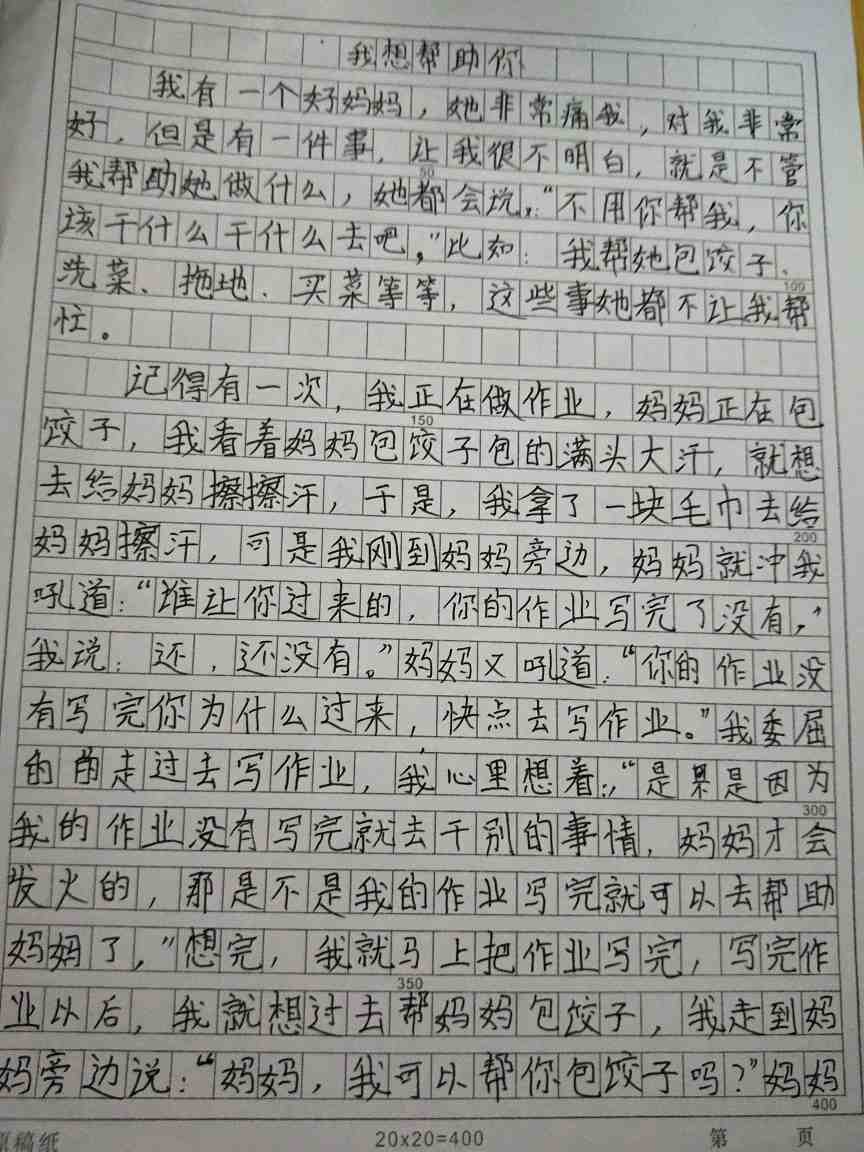 我想帮助你
我有一个好妈妈，她非常痛我，对我非常
好，但是有一件事，让我很不明白，就是不管
50
我帮助她做什么，她都会说，：“不用你帮我，你
该干什么干什么去吧，”比如：我帮她包饺子、
100
洗菜、拖地、买菜等等，这些事她都不让我帮
忙。
记得有一次，我正在做作业，妈妈正在包
150
饺子，我看着妈妈包饺子包的满头大汗，就想
去给妈妈擦擦汗，于是，我拿了一块毛巾去给
200
妈妈擦汗，可是我刚到妈妈旁边，妈妈就冲我
吼道：“谁让你过来的，你的作业写完了没有，”
我说：还，还没有。”妈妈又吼道：“你的作业没
有写完你为什么过来，快点去写作业。”我委屈
的走过去写作业，我心里想着：，“是果是因为
300
我的作业没有写完就去干别的事情，妈妈才会
发火的，那是不是我的作业写完就可以去帮助
妈妈了，”想完，我就马上把作业写完，写完作
350
业以后，我就想过去帮妈妈包饺子，我走到妈
妈旁边说：“妈妈，我可以帮你包饺子吗？”妈妈
400
原稿纸 20x20=400 第 页